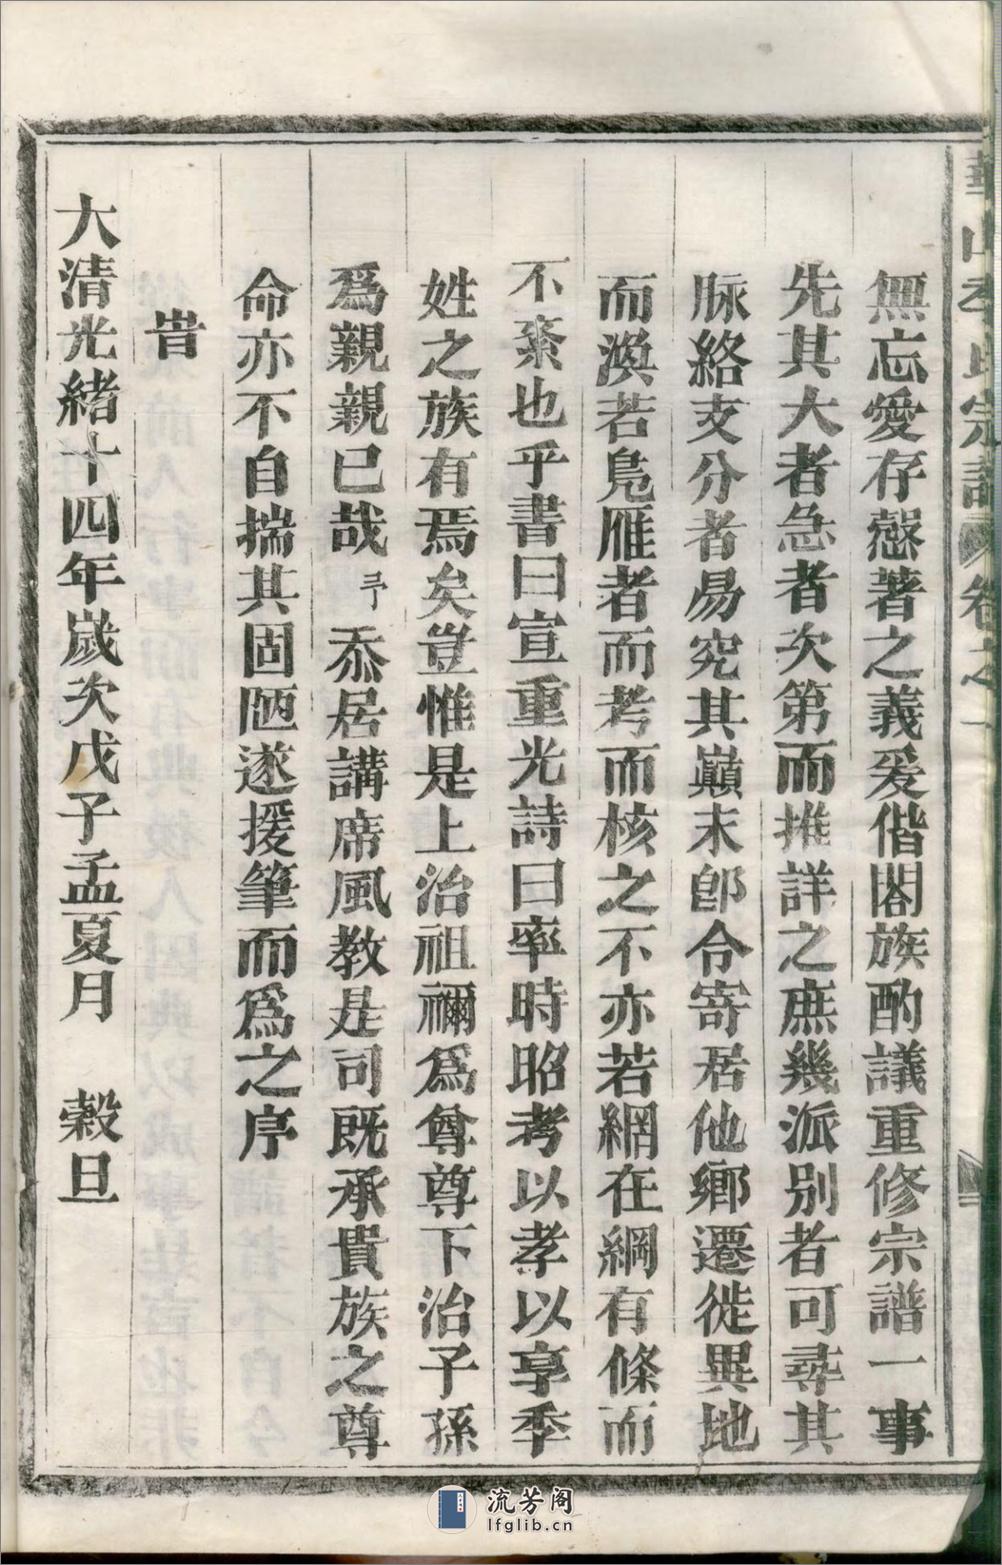 華山季氏宗譜 卷之一
無忘愛存慤著之義爰偕閤族酌議重修宗譜一事
先其大者急者次第而推詳之庶幾派別者可尋其
脉絡支分者易究其巔末卽令寄居他鄉遷徙異地
而渙若鳧雁者而考而核之不亦若網在綱有條而
不紊也乎書曰宣重光詩曰率時昭考以孝以享季
姓之族有焉矣豈惟是上治祖禰爲尊尊下治子孫
爲親親已哉予忝居講席風教是司既承貴族之尊
命亦不自揣其固陋遂援筆而爲之序
旹
大清光緒十四年歲次戊子孟夏月 榖旦
流芳阁
lfglib.cn